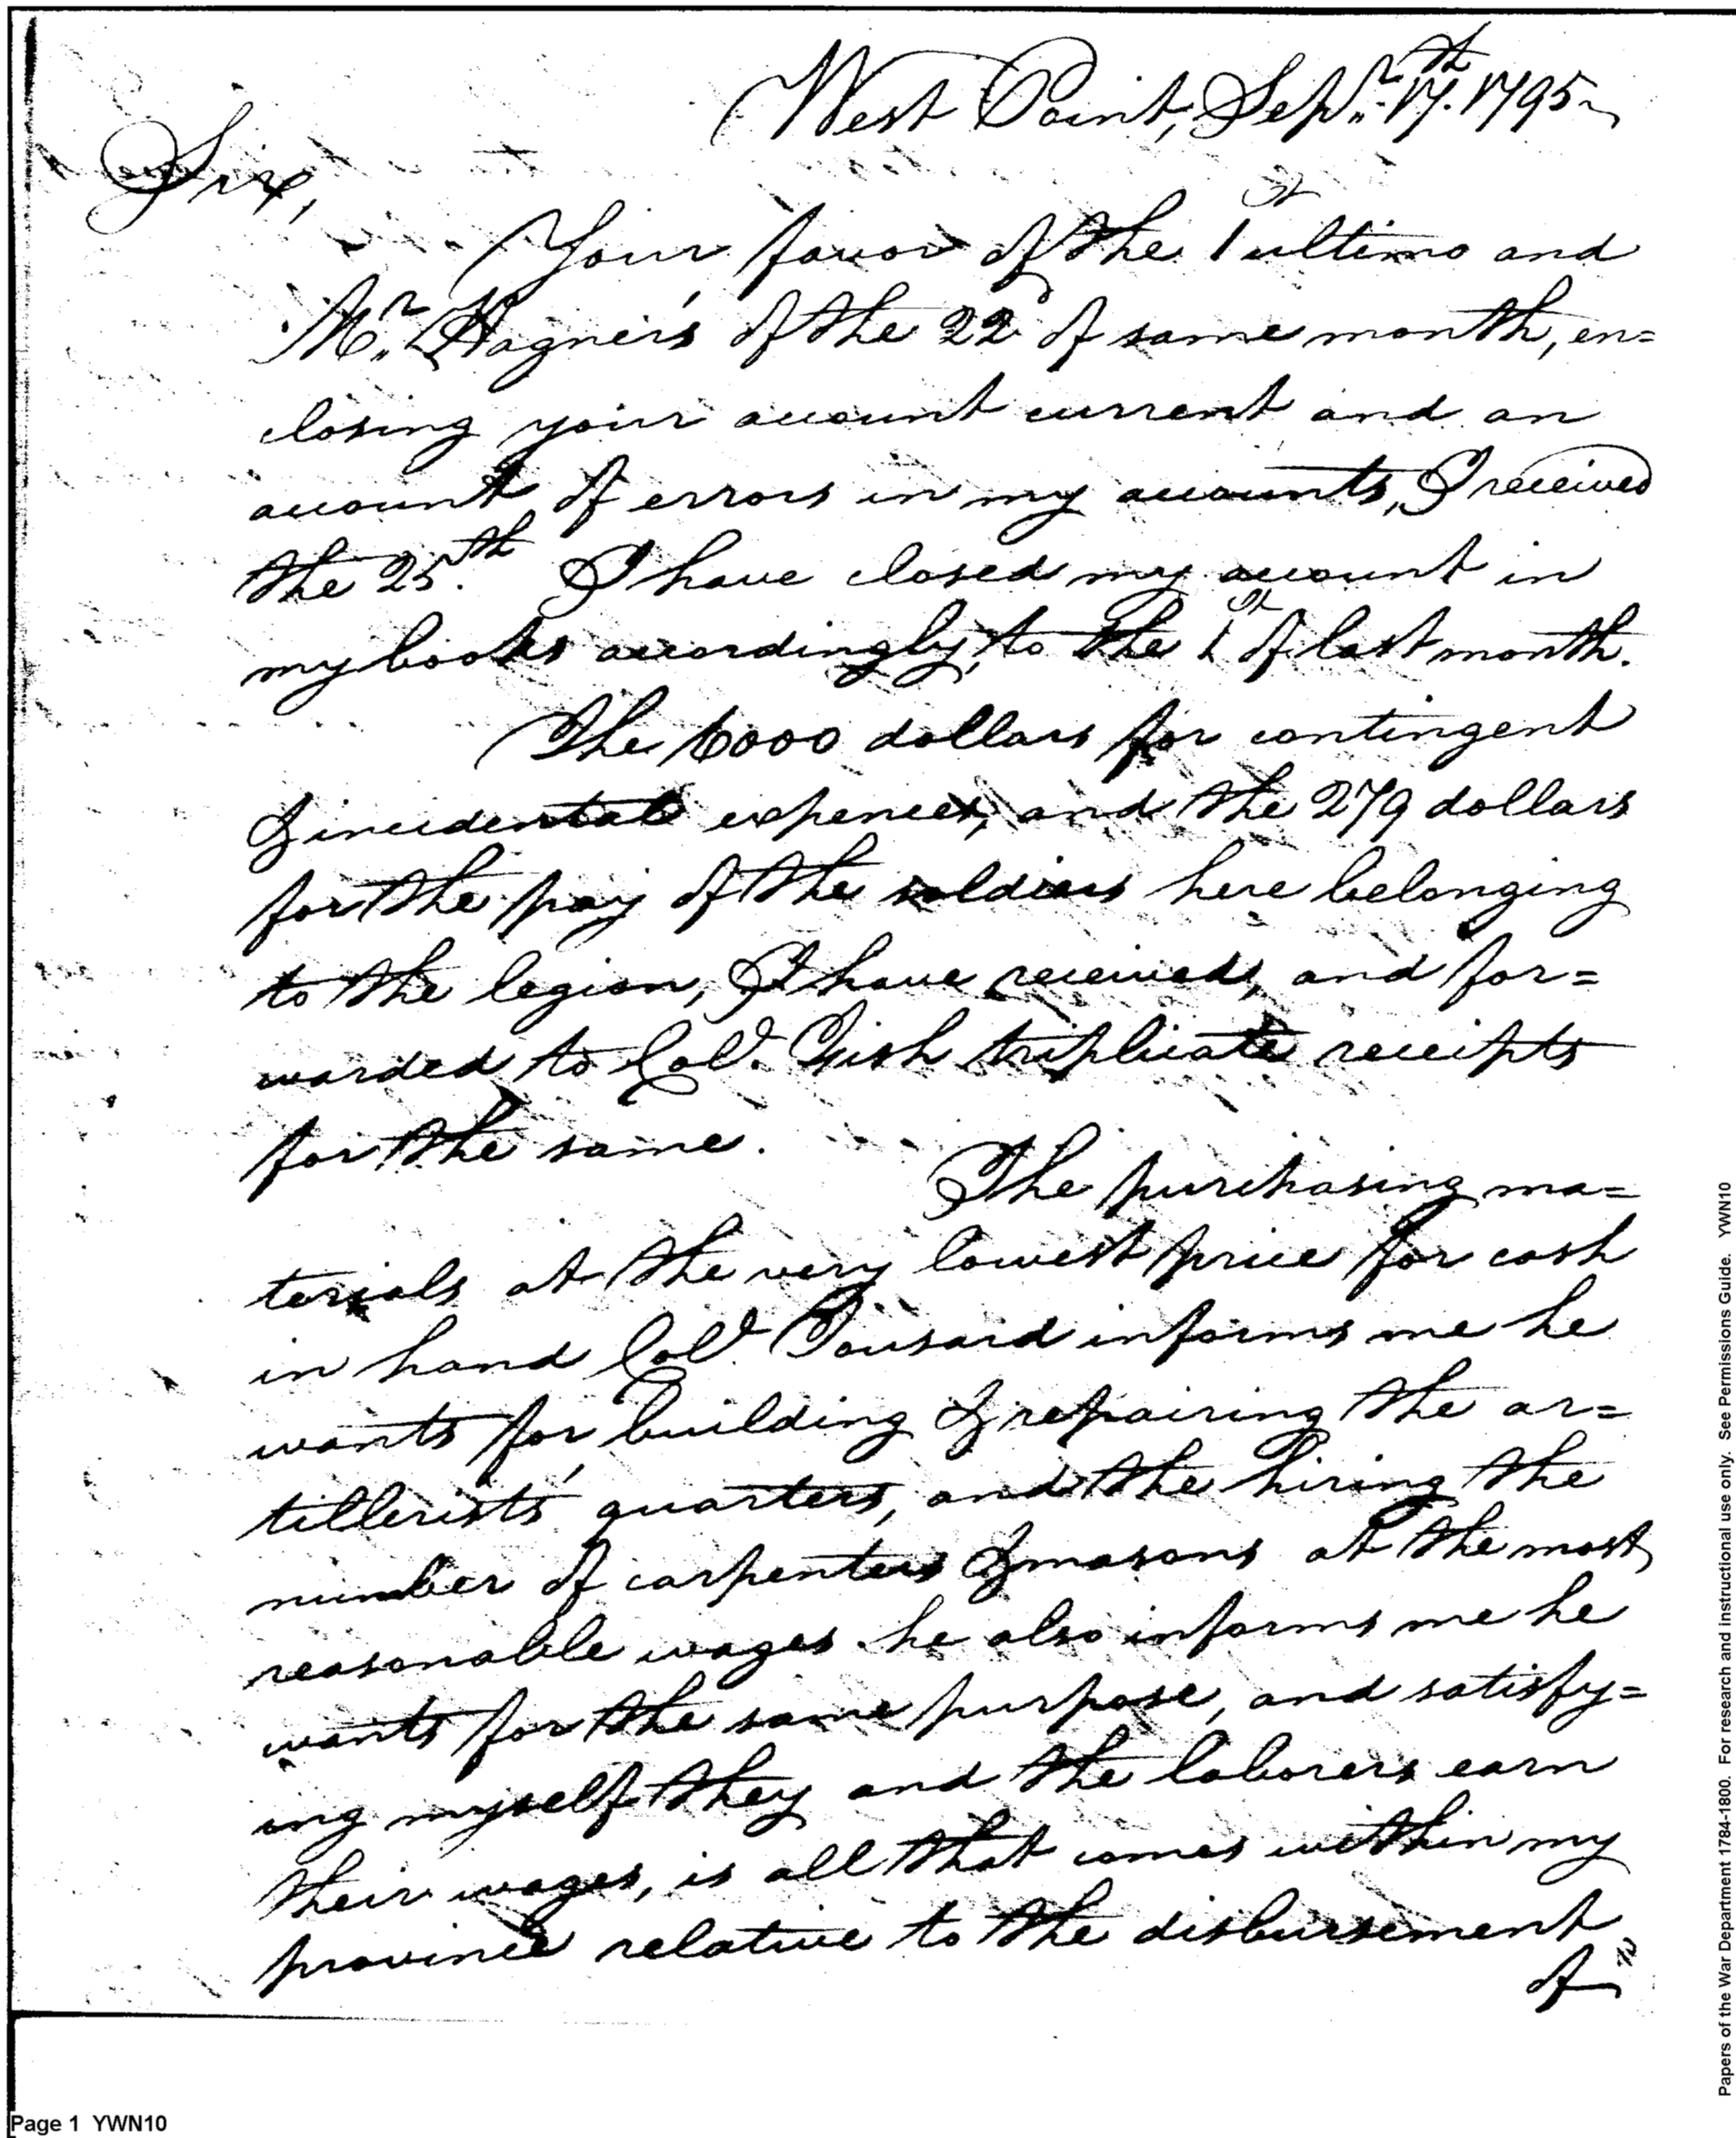 West Point, Sepr. 17th. 1795
Sir,
Your favor of the 1st ultimo and
Mr. Hagner's of the 22d of same month, en=
closing your account current and an
account of errors in my accounts, I received
the 25th. I have closed my account in
my books accordingly, to the 1st of last month.
The 6000 dollars for contingent
& incidental expences, and the 279 dollars
for the pay of the soldiers here belonging
to the legion, I have received, and for=
warded to Col. Fish triplicate receipts
for the same.
The purchasing ma=
terials at the very lowest price for cash
in hand Col. Tousard informs me he
wants for building & repairing the ar=
tillerists' quarters, and the hiring the
number of carpenters & masons at the most
reasonable wages he also informs me he
wants for the same purpose, and satisfy=
ing myself they and the laborers earn
their wages, is all that comes within my
province relative to the disbursement
of
Page 1 YWN10
Papers of the War Department 1784-1800. For research and instructional use only. See Permissions Guide. YWN10